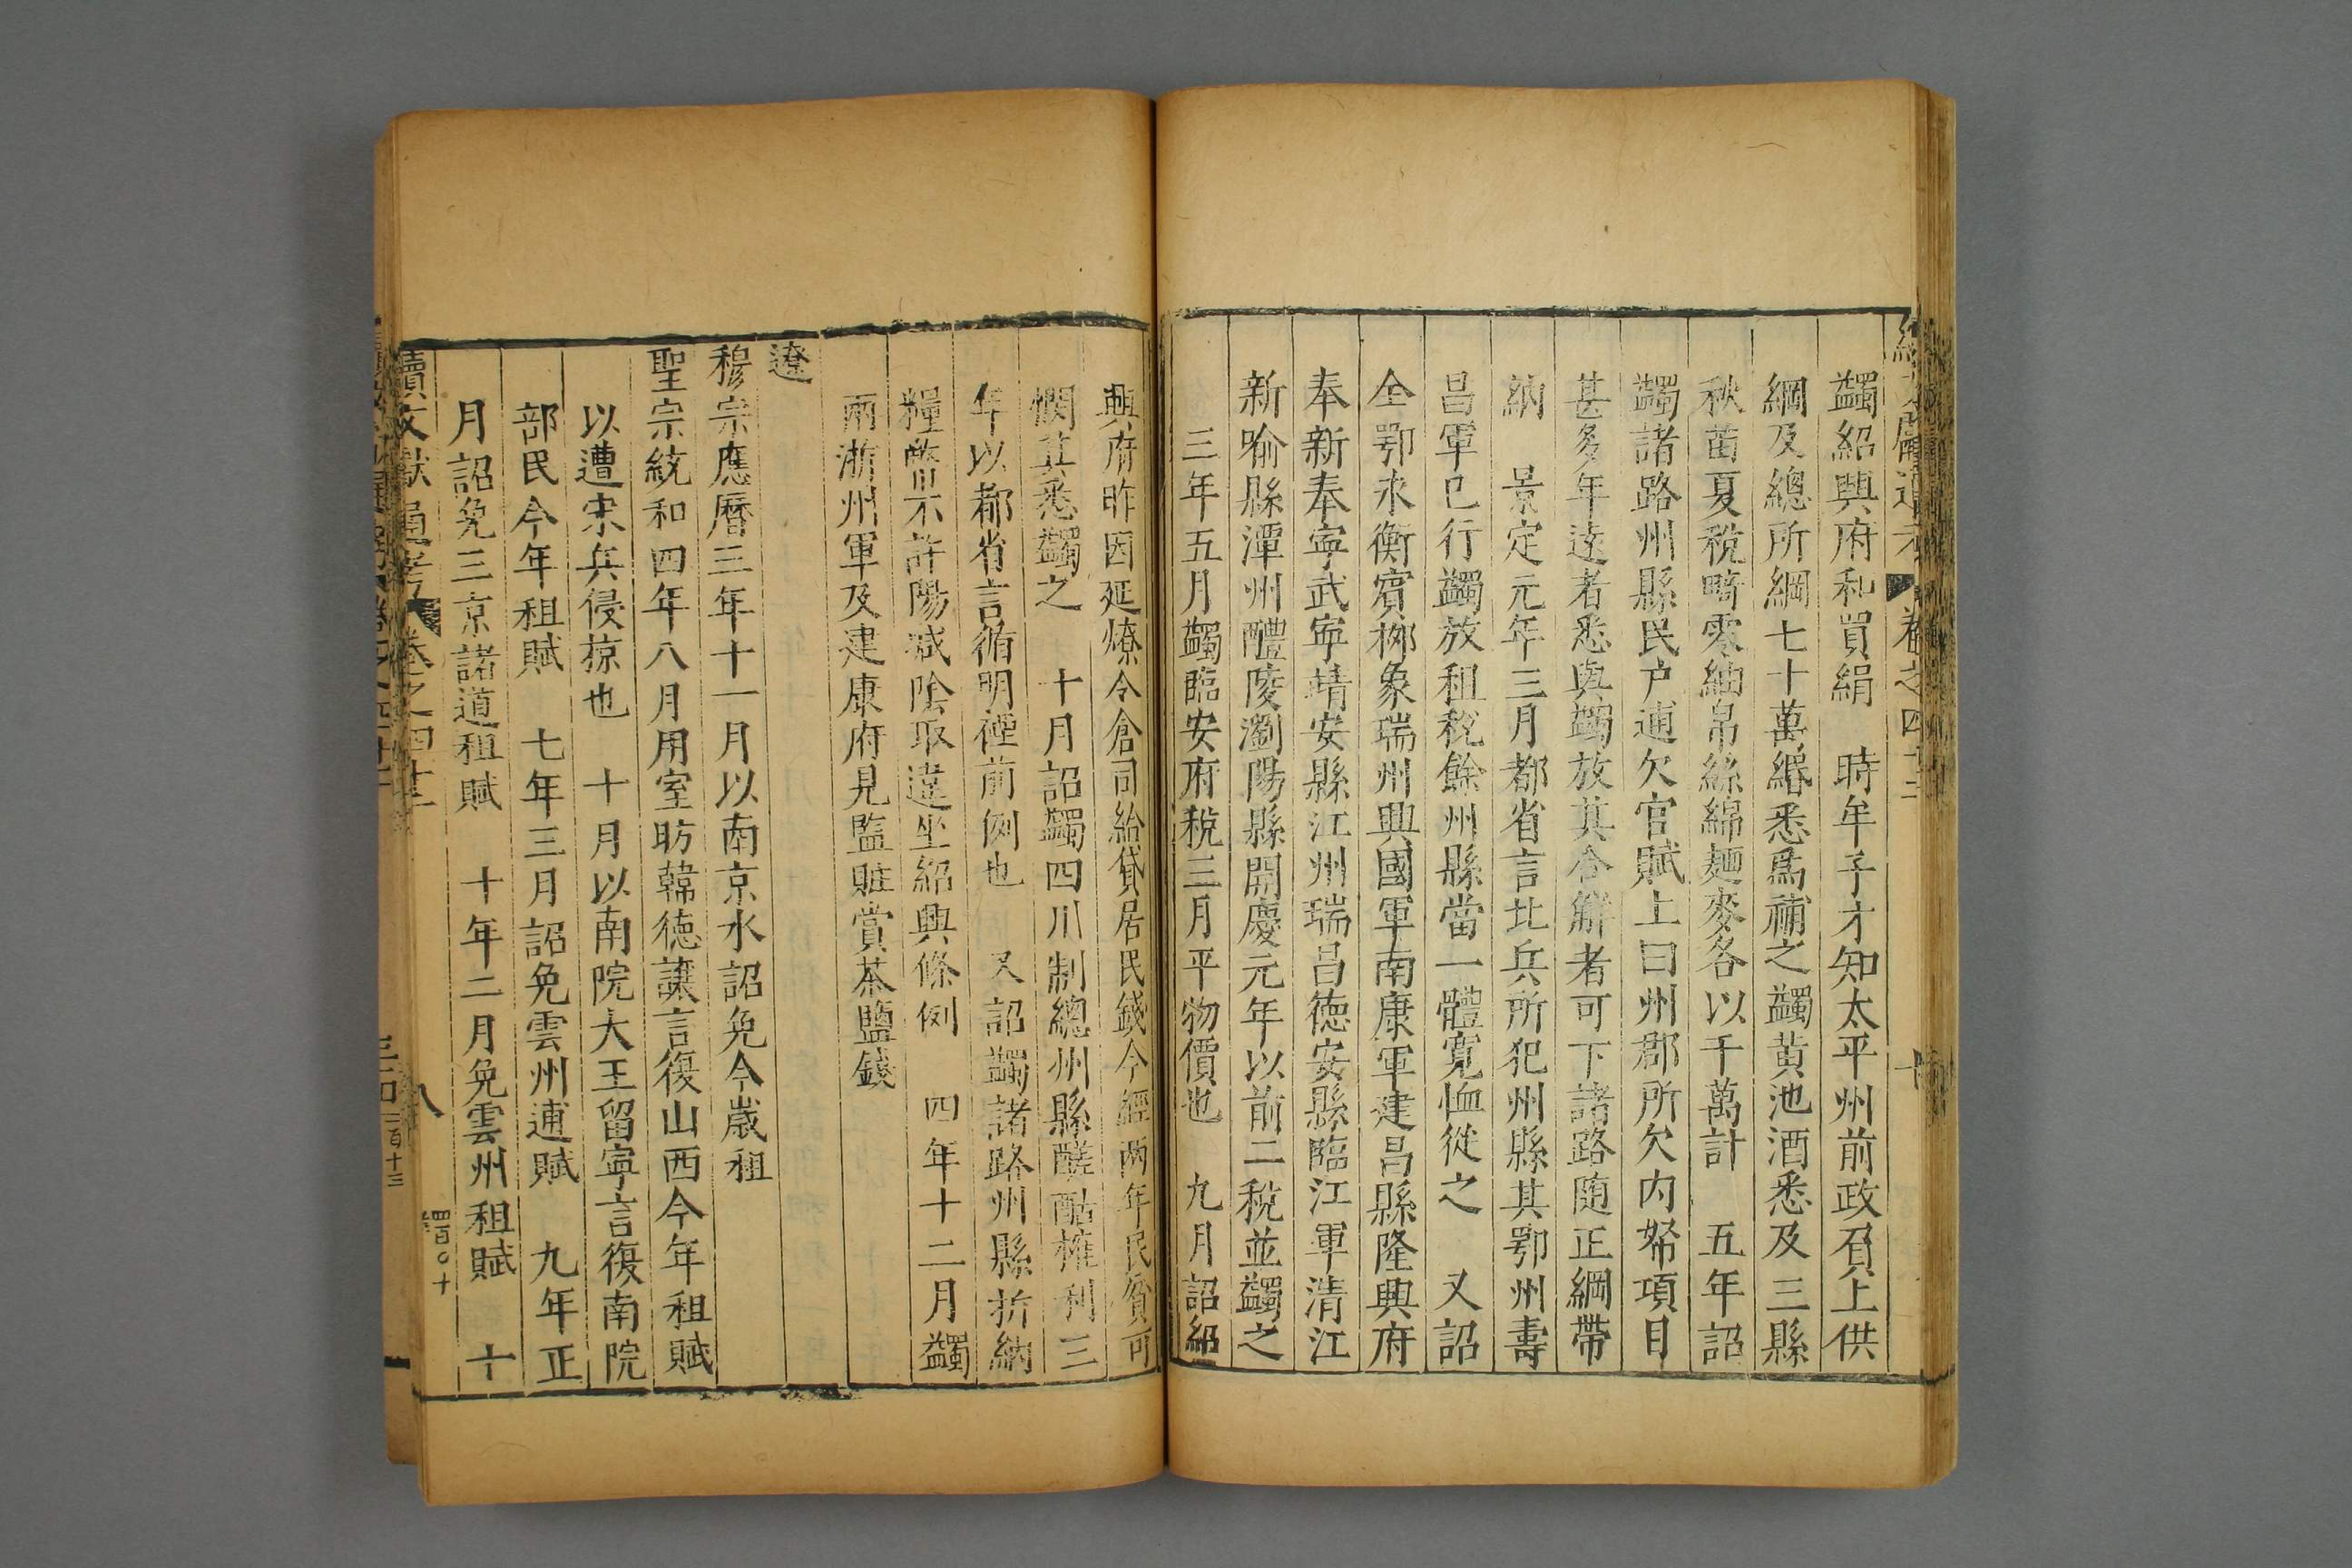 蠲紹興府和買絹　時牟子才知太平州前政負上供
綱及總所綱七十萬緡悉爲補之蠲黄池酒悉及三縣
秋苗夏稅畸零紬帛絲綿麵麥各以千萬計　五年詔
蠲諸路州縣民户逋欠官賦上曰州郡所欠内帑項目
甚多年逺者悉與蠲放其合觧者可下諸路随正綱帶
納　景定元年三月都省言北兵所犯州縣其鄂州壽
昌軍已行蠲放租稅餘州縣當一體寬恤從之　又詔
全鄂永衡賓柳象瑞州興國軍南康軍建昌縣隆興府
奉新奉寧武寧靖安縣江州瑞昌德安縣臨江軍清江
新喻縣潭州醴陵瀏陽縣開慶元年以前二稅並蠲之
三年五月蠲臨安府稅三月平物價也　九月詔紹
興府昨因延燎令倉司給貸居民錢今經兩年民貧可
憫並悉蠲之　十月詔蠲四川制總州縣醝酤榷利三
年以都省言循明禋前例也　又詔蠲諸路州縣折納
糧嘗不許陽減陰取違坐紹興條例　四年十二月蠲
兩浙州軍及建康府見監贓賞茶鹽錢
遼
穆宗應曆三年十一月以南京水詔免今歲租
聖宗統和四年八月用室昉韓德讓言復山西今年租賦
以遭宋兵侵掠也　十月以南院大王留寧言復南院
部民今年租賦　七年三月詔免雲州逋賦　九年正
月詔免三京諸道租賦　十年二月免雲州租賦　十
續文獻通考　卷之四十三　八
四百〇十